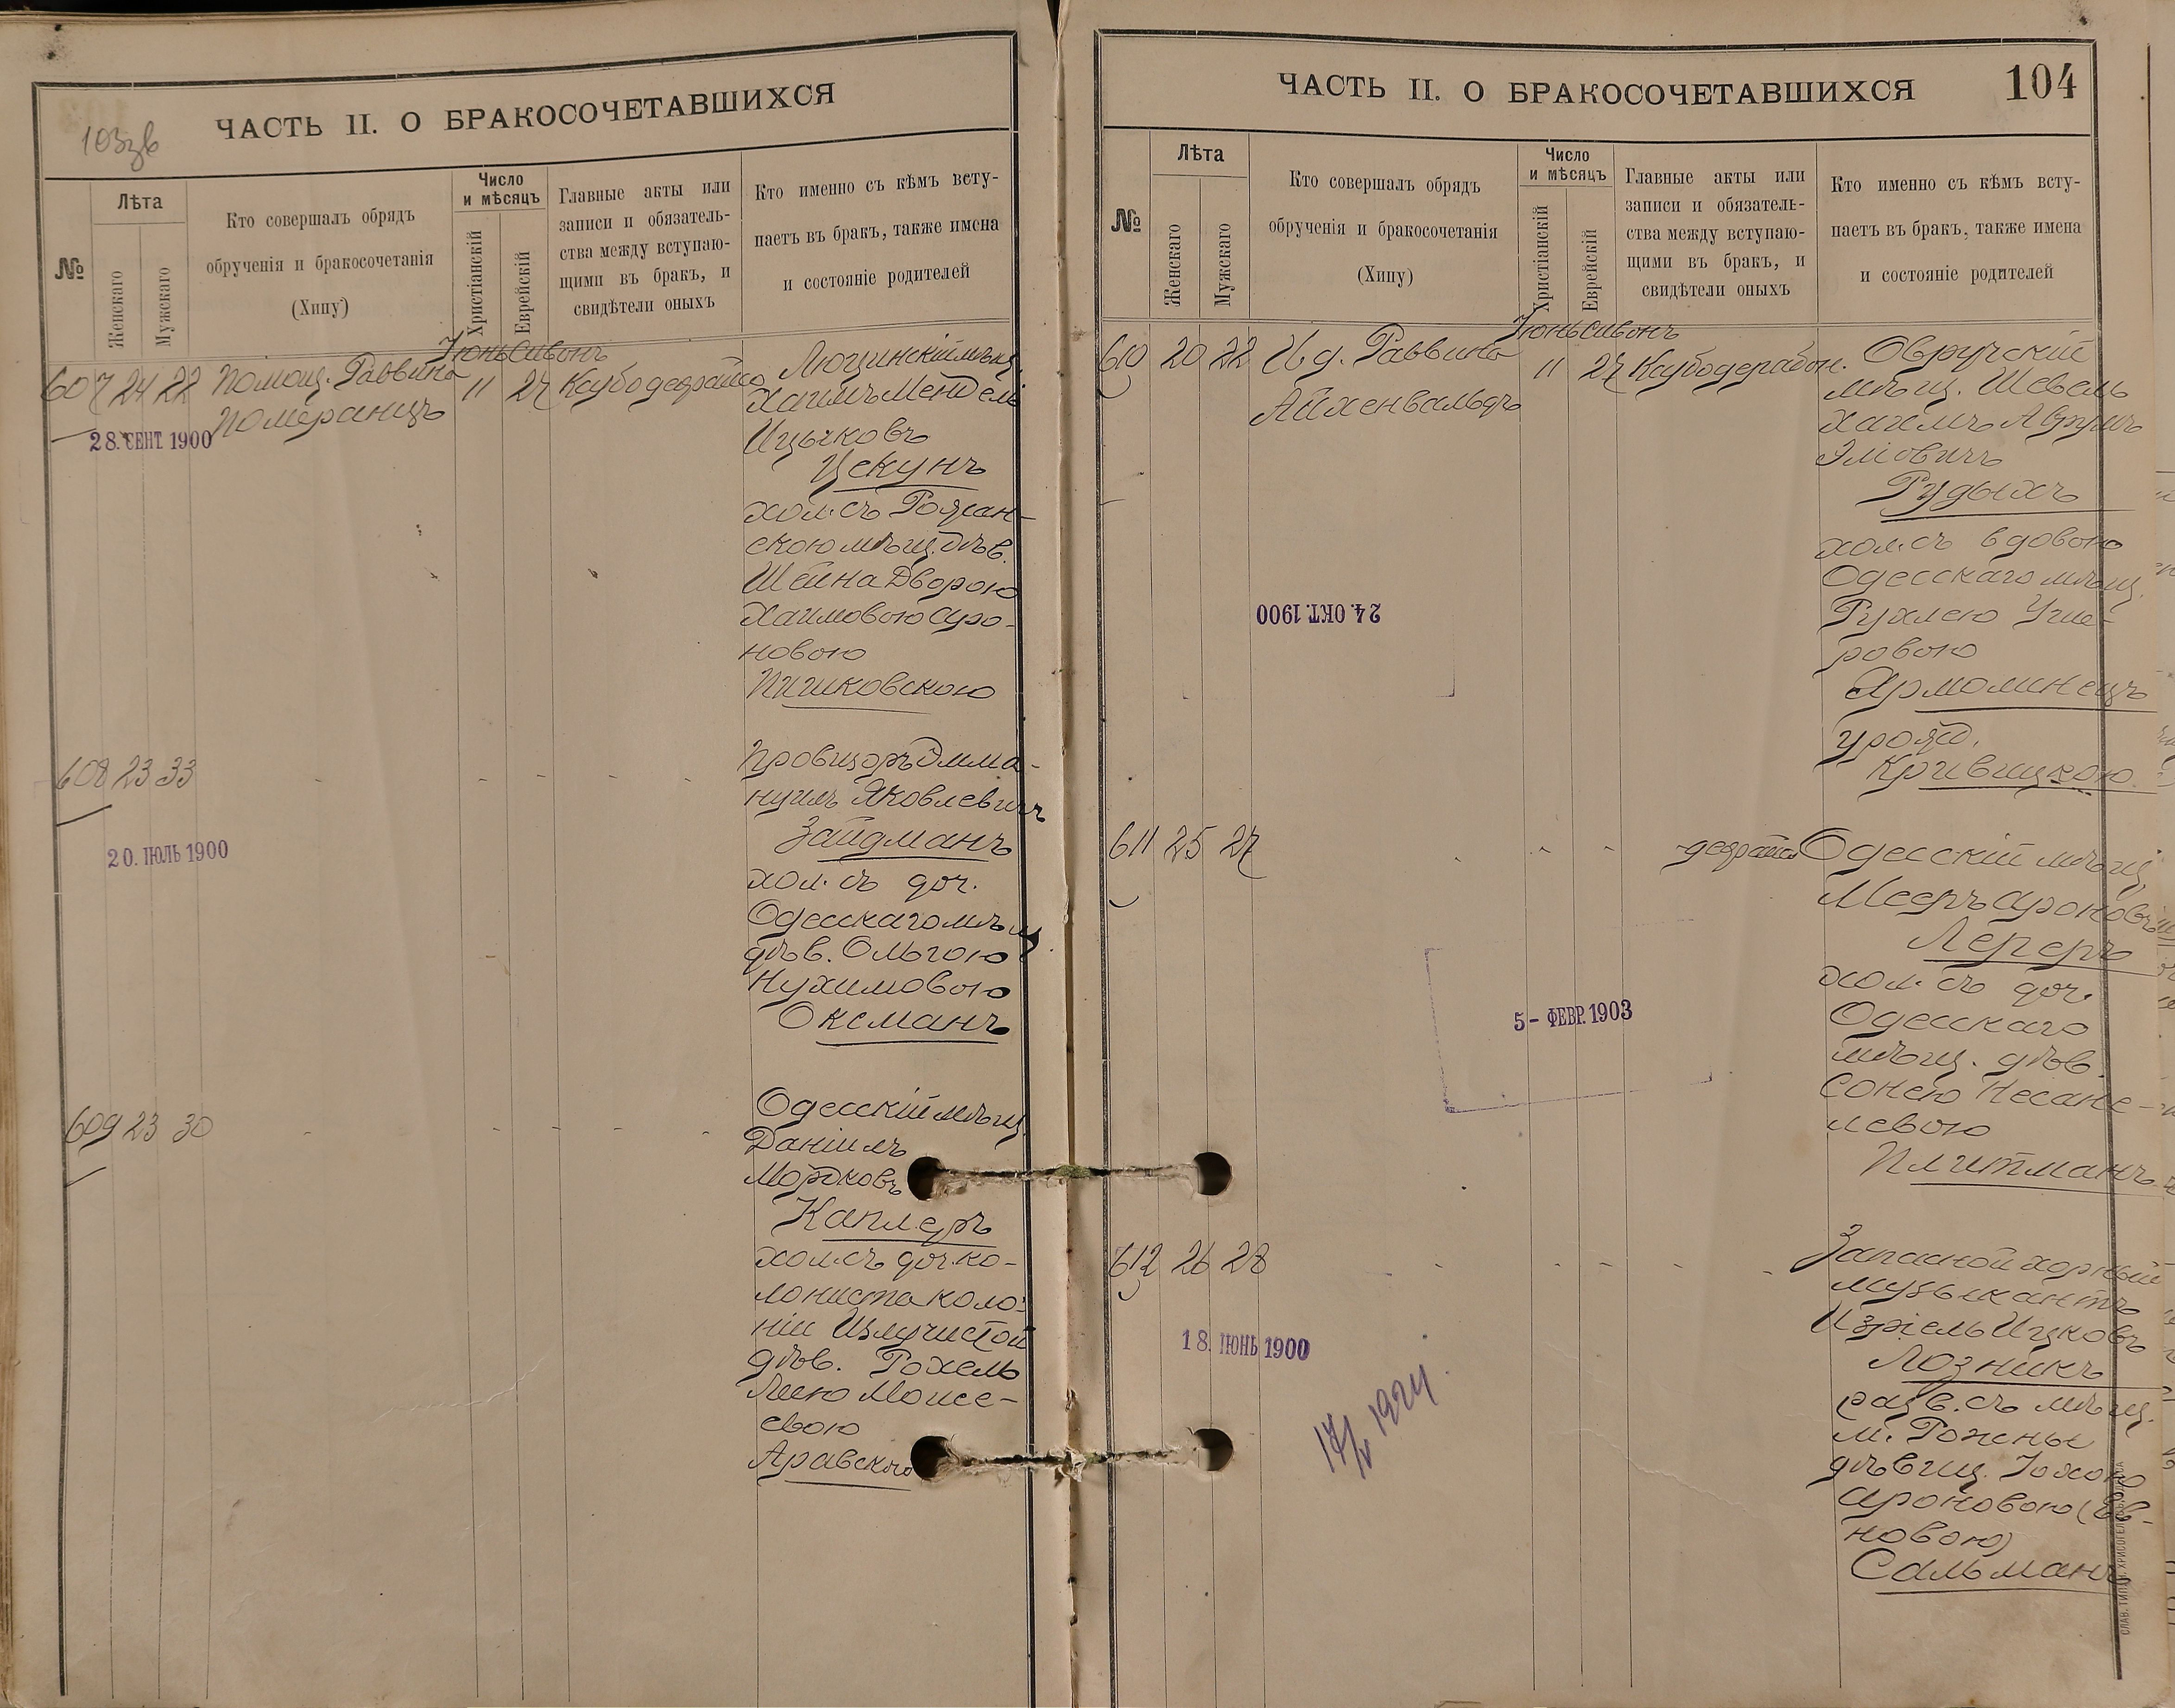 103зв
ЧАСТЬ II. О БРАКОСОЧЕТАВШИХСЯ
№
Лѣта
Женскаго
Мужскаго
Кто совершалъ обрядъ
обрученія и бракосочетанія
(Хипу)
Число
и мѣсяцъ
Христіанскій
Еврейскій
Главные акты или
записи и обязатель-
ства между вступаю-
щими въ бракъ, и
свидѣтели оныхъ
Кто именно съ кѣмъ всту-
паетъ въ бракъ, также имена
и состояніе родителей
Іюнь Сивонъ
607 24 22 Помощ. Раввина 11 27
Померанцъ
28. СЕНТ. 1900
Люцинскій мѣщ.
Хаимъ Мендель
Ицыковъ
Цекунъ
хол. съ Рожан-
скою мѣщ. дѣв.
Шейна Дворою
Хаимовою Аро-
новою
Пишковскою
608 23 33 - - - - -
20. ІЮЛЬ 1900
Провизоръ Эмма-
нуилъ Яковлевичъ
Зайдманъ
хол. съ доч.
Одесскаго мѣщ.
дѣв. Ольгою
Нухимовою
Оксманъ
609 23 30 - - - - -
Одесскій мѣщ.
Даніилъ
Мордковъ
Каплеръ
хол. съ доч. ко-
лониста коло-
ніи Излучистой
дѣв. Рохель
Леею Моисе-
евою
Аравскою
ЧАСТЬ II. О БРАКОСОЧЕТАВШИХСЯ
104
№
Лѣта
Женскаго
Мужскаго
Кто совершалъ обрядъ
обрученія и бракосочетанія
(Хипу)
Число
и мѣсяцъ
Христіанскій
Еврейскій
Главные акты или
записи и обязатель-
ства между вступаю-
щими въ бракъ, и
свидѣтели оныхъ
Кто именно съ кѣмъ всту-
паетъ въ бракъ, также имена
и состояніе родителей
Іюнь Сивонъ
610 20 22 И д. Раввина 11 27
Айхенвальдъ
24. ОКТ. 1900
Овручскій
мѣщ. Шевель
Хаимъ Аврумъ
Эліовичъ
Рудыхъ
хол. съ вдовою
Одесскаго мѣщ.
Рухлею Уше-
ровою
Ярмолинецъ
урожд.
Кривицкою
611 25 27 - - -
5 - ФЕВР. 1903
Одесскій мѣщ.
Мееръ Ароновъ
Лереръ
хол. съ доч.
Одесскаго
мѣщ. дѣв.
Сонею Несане-
левою
Плитманъ
612 26 28 - - - - -
18. ІЮНЬ 1900
17/V 1924.
Запасной хорный
музыкантъ
Изріель Ицковъ
Лозникъ
разв. съ мѣщ.
м. Рожны
дѣвиц.
Ароновою
новою)
Сальманъ
СЛАВ. ТИПОГР. ХРИСОГЕЛОСЪ, ОДЕССА